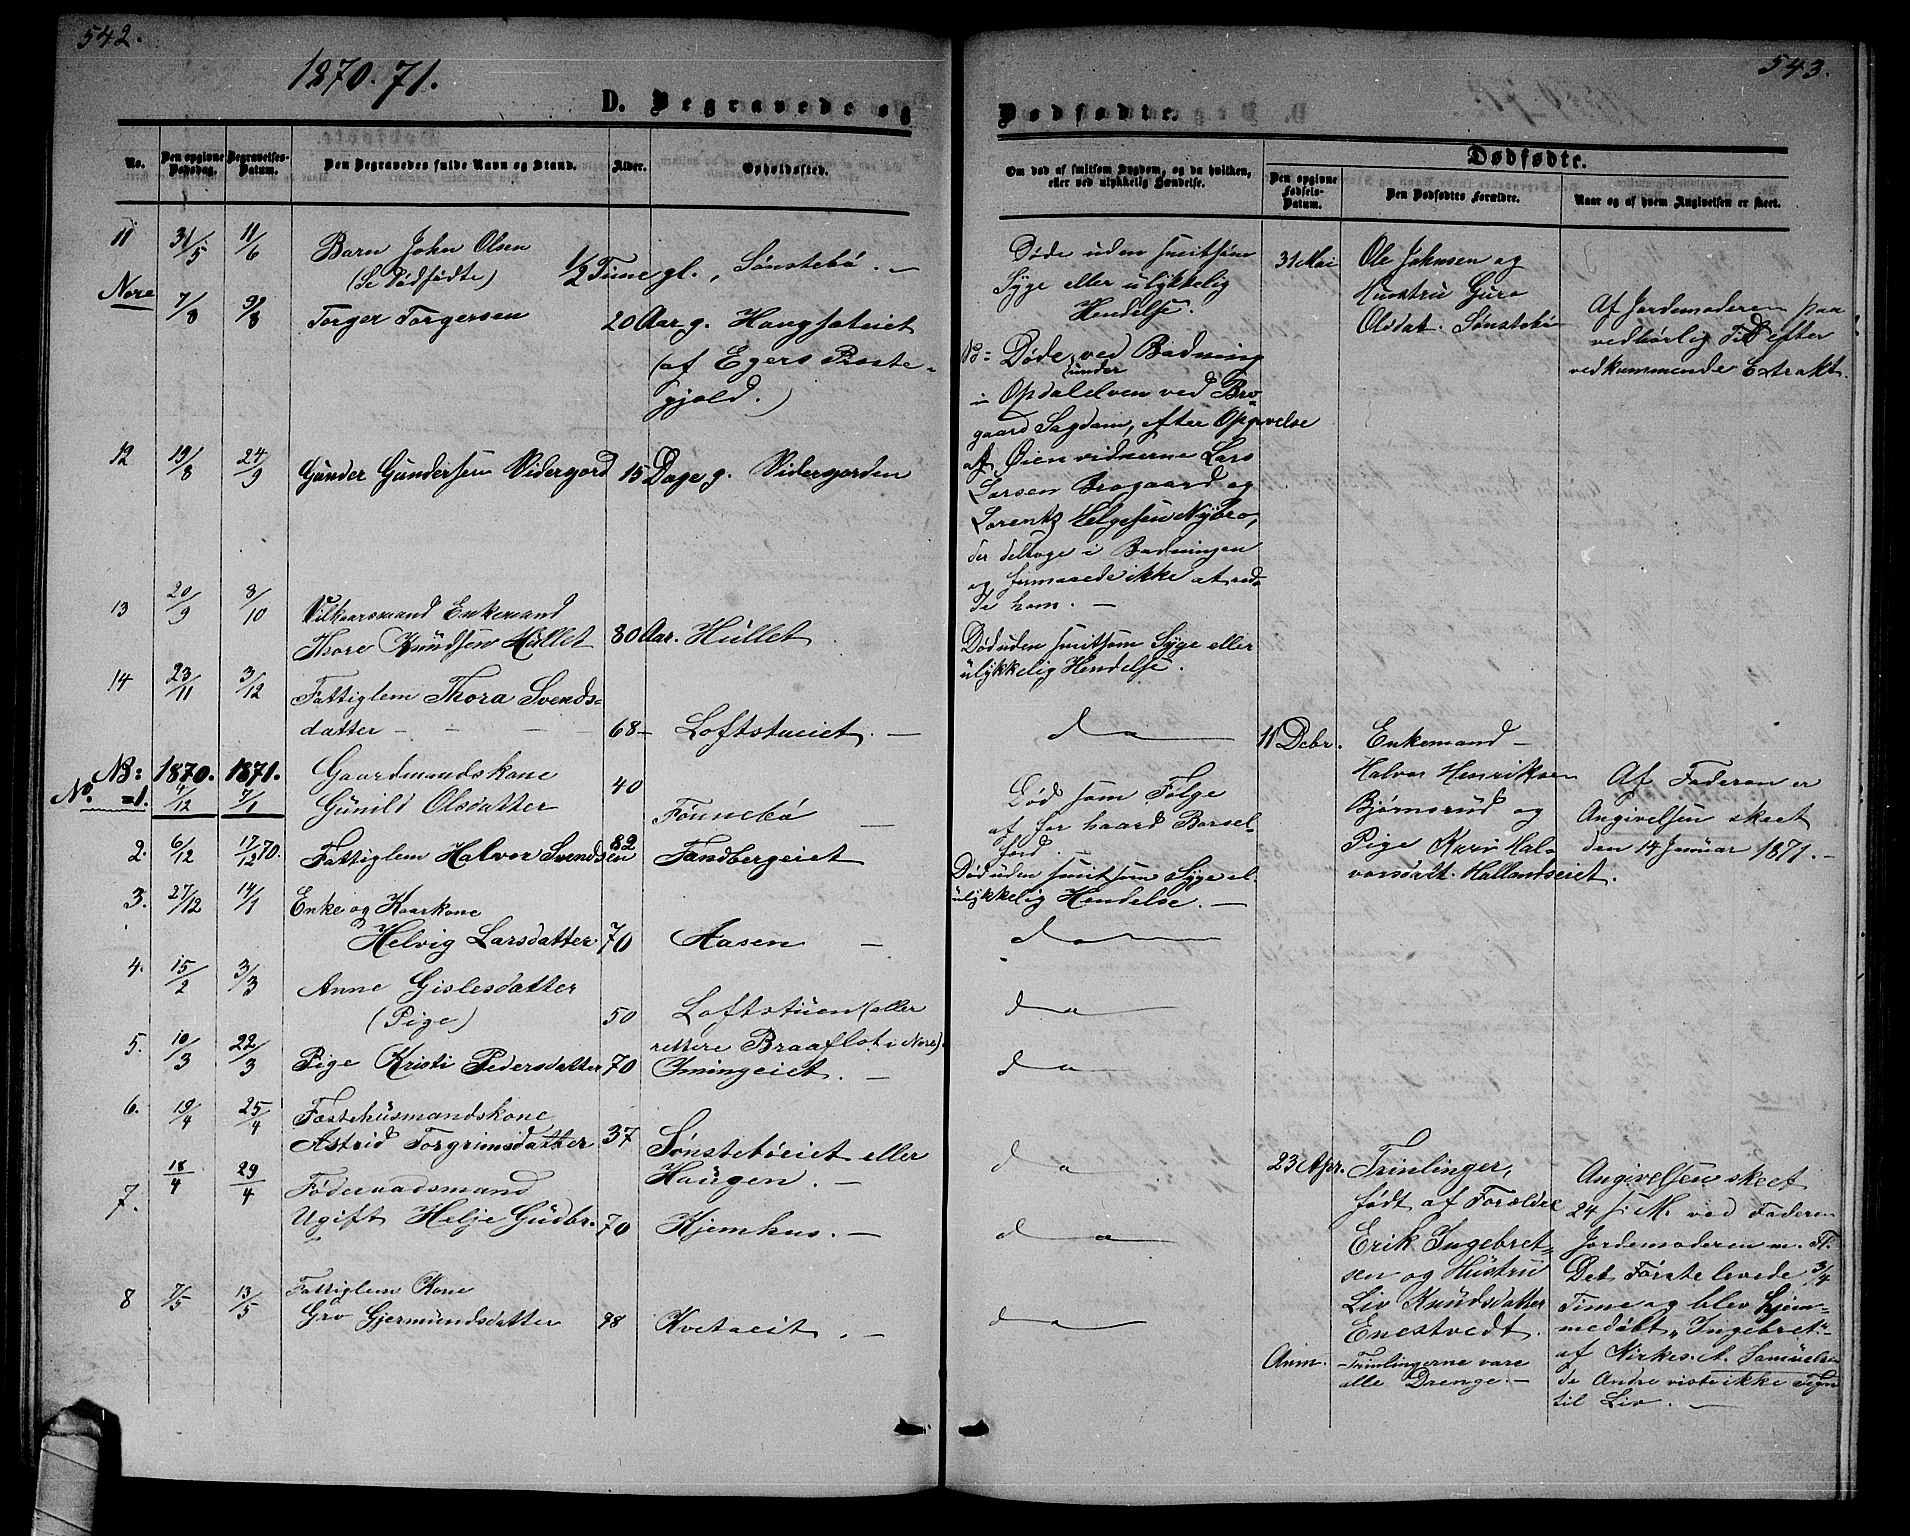 542.
1870. 71.
D. Begravede og
No.
Den opgivne Dødsdag.
Begravelses-Datum.
Den Begravedes fulde Navn og Stand.
Alder.
Opholdssted.
11 31/5 11/6 Barn John Olsen
(Se Dødfødte) 1/2 Time gl. Sønstebø. —
Nore
7/8 9/8 Torger Torgersen 20 Aar g. Haugsateiet
(af Egers Præste-
gjeld.)
12 19/8 24/9 Gunder Gundersen Vidergord 15 Dage g. Vidergorden
13 20/9 8/10 Vilkaarsmand Enkemand
Thore Knudsen Hullet 80 Aar. Hullet
14 23/11 3/12 Fattiglem Thora Svends-
datter — — — — 68 — Loftstueiet. —
NB: 1870. 1871. Gaardmandskone 40
No. =1. 4/12 7/1 Gunild Olsdatter Fønnebø —
2. 6/12 17/12 70. Fattiglem Halvor Svendsen 82 Tandbergeiet
3. 27/12 14/1 Enke og Kaarkone
Helvig Larsdatter 70 Aasen —
4. 15/2 3/3 Anne Gislesdatter
(Pige) 50 Loftstuen (eller
rettere Braaflot i Nore).
5. 10/3 22/3 Pige Kristi Pedersdatter 70 Imingeiet. —
6. 19/4 25/4 Fæstehusmandskone
Astrid Torgrimsdatter 37 Sønstebøeiet eller
Haugen. —
7. 18/4 29/4 Føderaadsmand
Ugift Helje Gudbr. 70 Kjemhus. —
8 7/5 13/5 Fattiglem Kone
Gro Gjermundsdatter 98 Kvetaeit. —
543.
Dødfødte.
Om død af smitsom Sygdom, og da hvilken,
eller ved ulykkelig Hændelse.
Dødfødte.
Den opgivne Fødsels-Datum.
Den Dødfødtes Forældre.
Naar og af hvem Angivelsen er skeet.
Døde uden smitsom
Syge eller ulykkelig
Hendelse.
12= Døde ved Badning
under
i Opdalelven ved Bro-
gaard Sagdam, efter Opgivelse
af Øienvidnerne Lars
Larsen Brogaard og
Lorentz Helgesen Nybro,
der deltoge i Badningen
og formaaede ikke at red-
de ham. —
Død uden smitsom Syge eller
ulykkelig Hendelse.
do
Død som Følge
af for haard Barsel-
ford. —
Død uden smitsom Syge el.
ulykkelig Hendelse. —
do
do
do
do
do
do
31 Mai Ole Johnsen og
Hustru Guro
Olsdat. Sønstebø
Af Jordemoderen paa
vedbørlig Tid efter
vedkommende Extrakt.
11 Debr. Enkemand —
Halvor Henriksen
Bjørnsrud og
Pige Kari Hal-
vorsdatt. Hallandseiet.
Af Faderen er
Angivelsen skeet
den 14 Januar 1871. —
23 Apr. Trinlinger,
født af Forældre
Erik Ingebret-
sen og Hustru
Liv Knudsdatter
Enestvedt.
Anm. Trinlingerne vare
alle Drenge. —
Angivelsen skeet
24 s. M. ved Faderen
Jordemoderen m. Fl.
Det Første levede 3/4
Time og blev hjem-
medøbt "Ingebret"
af Kirkes. A. Samuelsen
de Andre viste ikke Tegn
til Liv. —